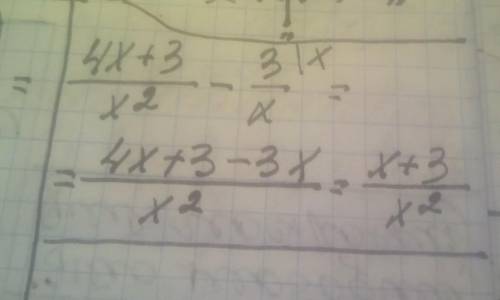 = (4x+3)/x² - 3\x/x =
= (4x+3-3x)/x² = (x+3)/x²